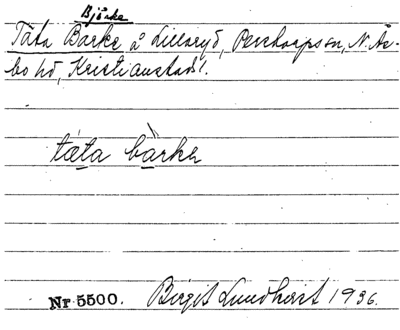 Björke
Täta Barke å Lillaryd, Perstorps sn, N. Ås-
bo hd, Kristianstads l.
tæta bàrka
Nr 5500. Birgit Lundhqvist 1936.